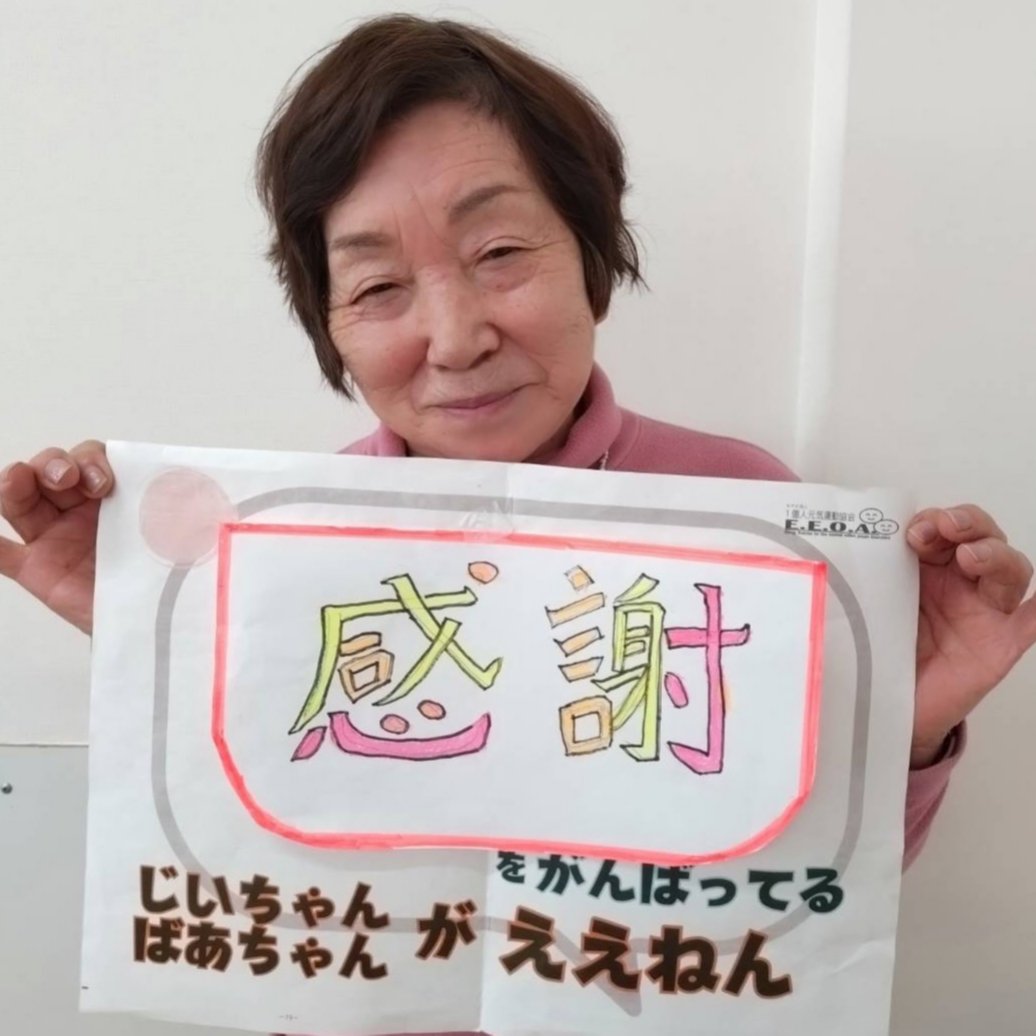 1億人元気運動協会
E.E.O.A
感謝
をがんばってる
じいちゃん
ばあちゃん
が
ええねん